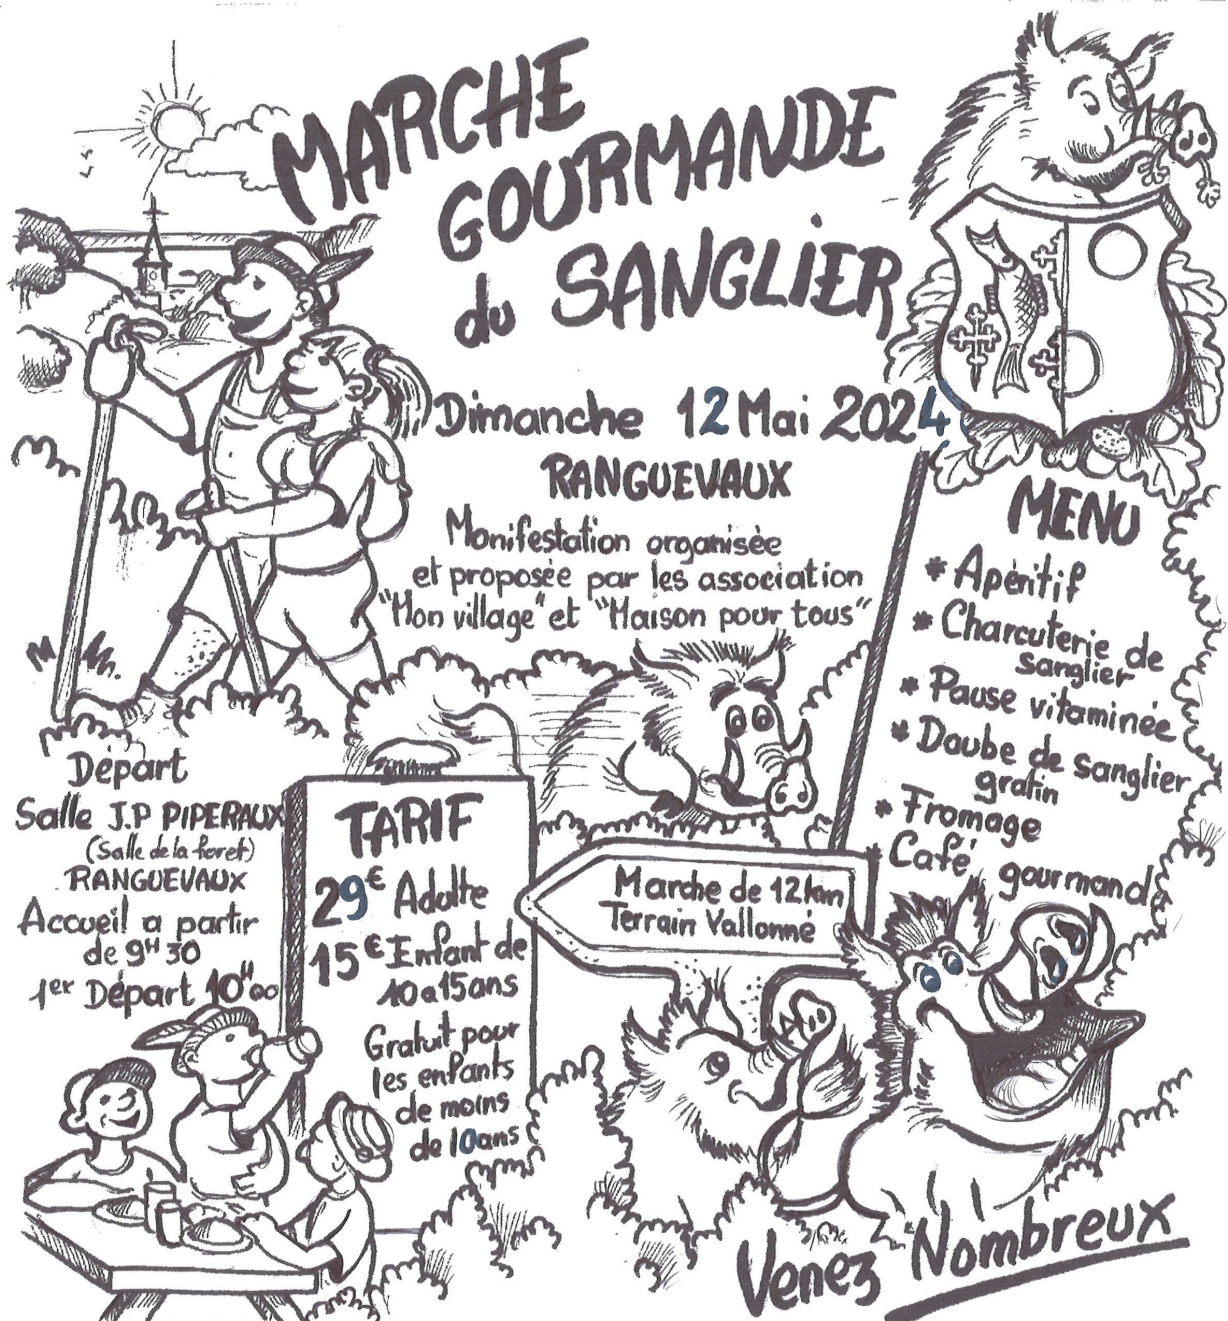 MARCHE
GOURMANDE
du SANGLIER
Dimanche 12 Mai 2024
RANGUEVAUX
Manifestation organisée
et proposée par les association
"Mon village" et "Maison pour tous"
MENU
* Apéritif
* Charcuterie de
sanglier
* Pause vitaminée
* Daube de sanglier
gratin
* Fromage
* Café gourmand
Départ
Salle J.P PIPERAUX
(Salle de la foret)
RANGUEVAUX
Accueil a partir
de 9H30
1er Départ 10H00
TARIF
29€ Adulte
15€ Enfant de
10 a 15 ans
Gratuit pour
les enfants
de moins
de 10 ans
Marche de 12km
Terrain Vallonné
Venez Nombreux